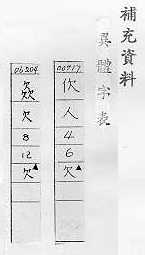 補充資料
異體字表
00717
佽
人
4
6
欠▲
06204
欠
8
12
欠▲